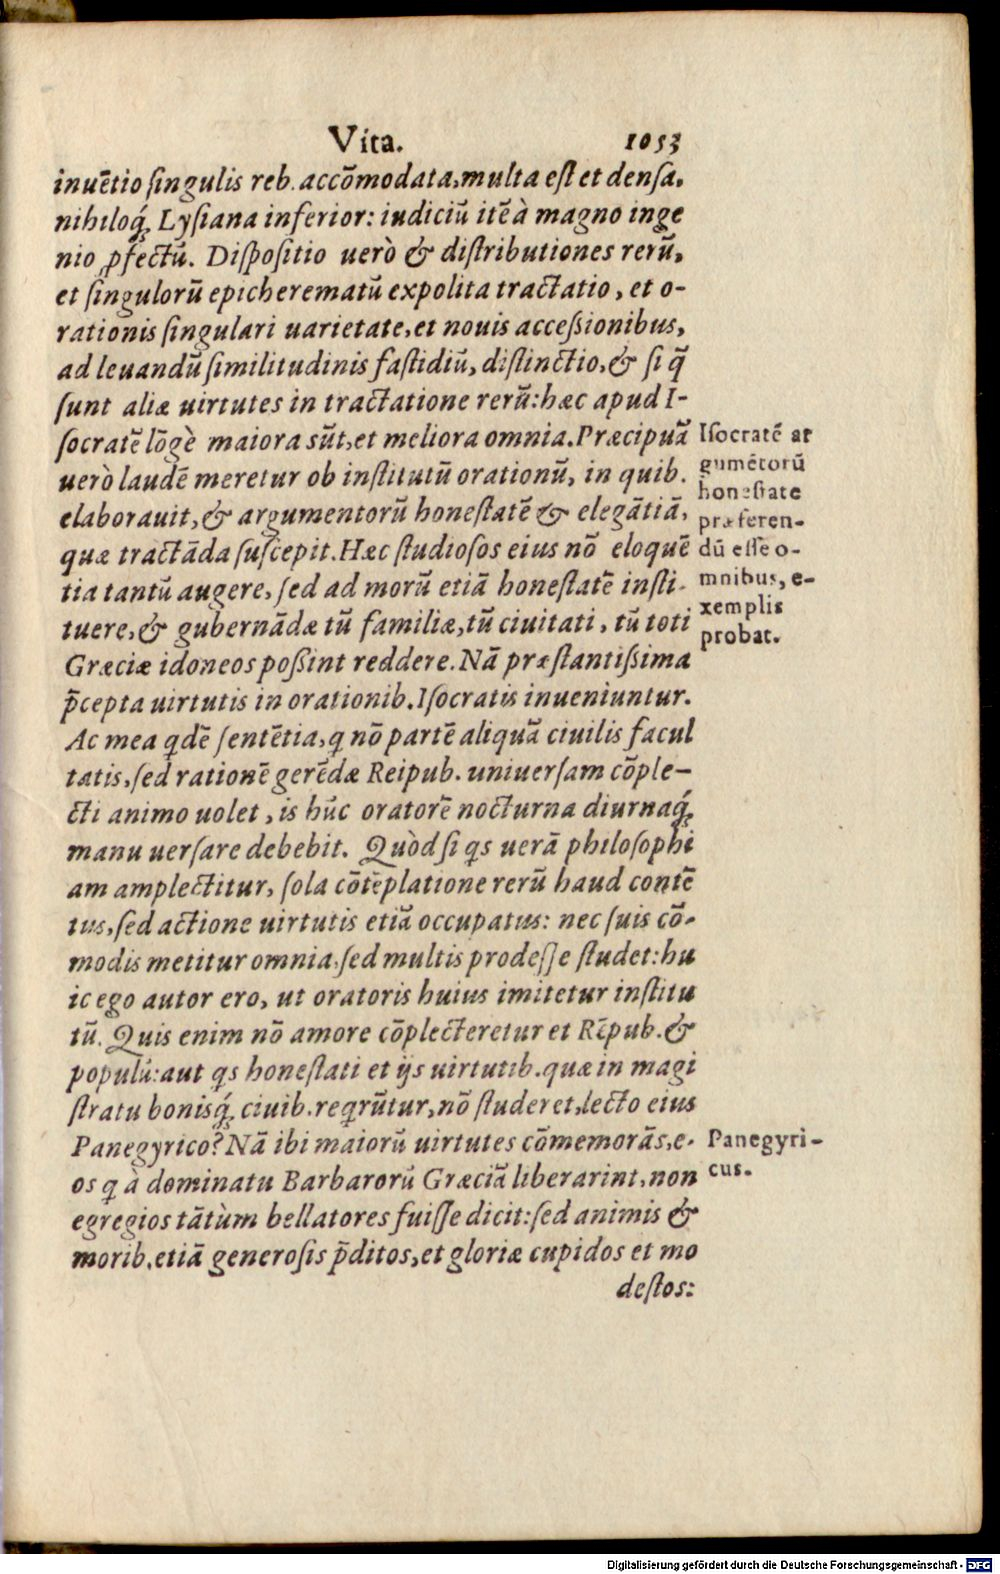 Vita. 1053
inuẽtio ſingulis reb. accõmodata, multa eſt et denſa,
nihiloq́ꝫ Lyſiana inferior: iudiciũ itẽ à magno inge
nio ꝓfectũ. Diſpoſitio uerò & diſtributiones rerũ,
et ſingulorũ epicherematũ expolita tractatio, et o-
rationis ſingulari uarietate, et nouis acceßionibus,
ad leuandũ ſimilitudinis faſtidiũ, diſtinctio, & ſi q̃
ſunt aliæ uirtutes in tractatione rerũ: hæc apud I-
ſocratẽ lõgè maiora sũt, et meliora omnia. Præcipuã
uerò laudẽ meretur ob inſtitutũ orationũ, in quib.
elaborauit, & argumentorũ honeſtatẽ & elegãtiã,
quæ tractãda ſuſcepit. Hæc ſtudioſos eius nõ eloquẽ
tia tantũ augere, ſed ad morũ etiã honeſtatẽ inſti-
tuere, & gubernãdæ tũ familiæ, tũ ciuitati, tũ toti
Græciæ idoneos poßint reddere. Nã præſtantißima
p̃cepta uirtutis in orationib. Iſocratis inueniuntur.
Ac mea qdẽ ſentẽtia, q nõ partẽ aliquã ciuilis facul
tatis, ſed rationẽ gerẽdæ Reipub. uniuerſam cõple-
cti animo uolet, is hũc oratorẽ nocturna diurnaq́ꝫ
manu uerſare debebit. Quòd ſi qs uerã philoſophi
am amplectitur, ſola cõtẽplatione rerũ haud contẽ
tus, ſed actione uirtutis etiã occupatus: nec ſuis cõ-
modis metitur omnia, ſed multis prodeſſe ſtudet: hu
ic ego autor ero, ut oratoris huius imitetur inſtitu
tũ. Quis enim nõ amore cõplecteretur et Rẽpub. &
populũ: aut qs honeſtati et ijs uirtutib. quæ in magi
ſtratu bonisq́ꝫ ciuib. reqrũtur, nõ ſtuderet, lecto eius
Panegyrico? Nã ibi maiorũ uirtutes cõmemorãs, e-
os q à dominatu Barbarorũ Græciã liberarint, non
egregios tãtùm bellatores fuiſſe dicit: ſed animis &
morib. etiã generoſis p̃ditos, et gloriæ cupidos et mo
deſtos:
Iſocratẽ ar
gumẽtorũ
honeſtate
præferen-
dũ eſſe o-
mnibus, e-
xemplis
probat.
Panegyri-
cus.
Digitalisierung gefördert durch die Deutsche Forschungsgemeinschaft - DFG